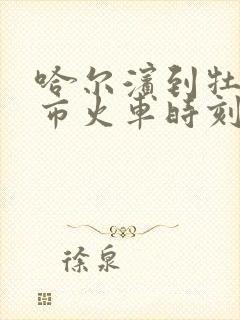 哈尔滨到牡
市火车时刻
徐泉